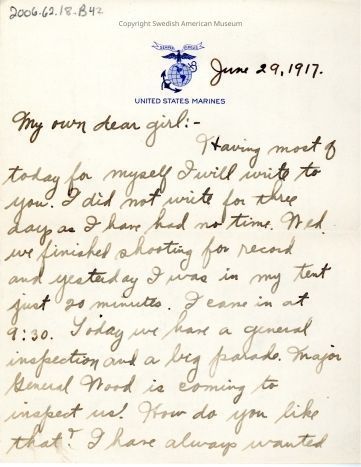 2006.62.18.B42
Copyright Swedish American Museum
SEMPER FIDELIS
June 29, 1917.
UNITED STATES MARINES
My own dear girl:-
Having most of
today for myself I will write to
you. I did not write for three
days as I have had no time. Wed.
we finished shooting for record
and yesterday I was in my tent
just 20 minutes. I came in at
9:30. Today we have a general
inspection and a big parade. Major
General Wood is coming to
inspect us! How do you like
that? I have always wanted